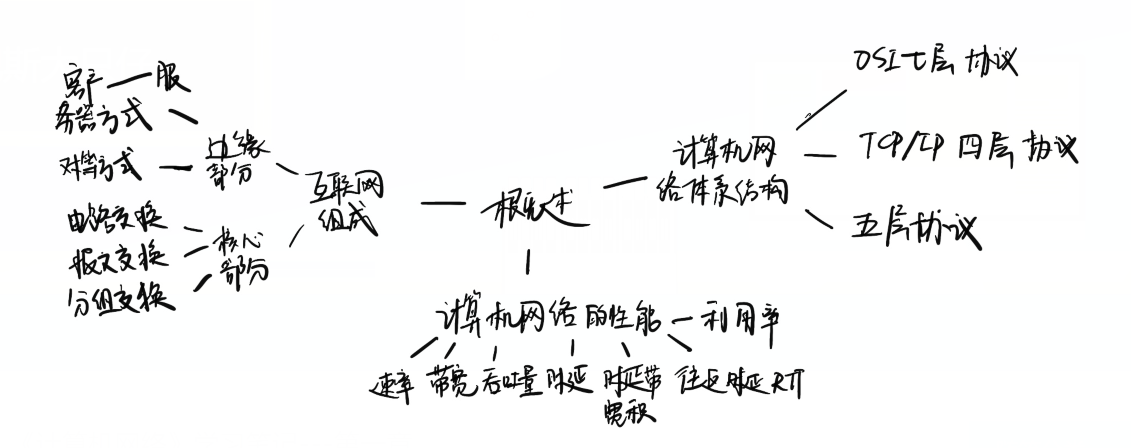 客户—服
务器方式
对等方式
边缘
部分
电路交换
报文交换
分组交换
核心
部分
互联网
组成
概述
计算机网
络体系结构
OSI七层协议
TCP/IP四层协议
五层协议
计算机网络的性能
利用率
速率
带宽
吞吐量
时延
时延带
宽积
往返时延RTT